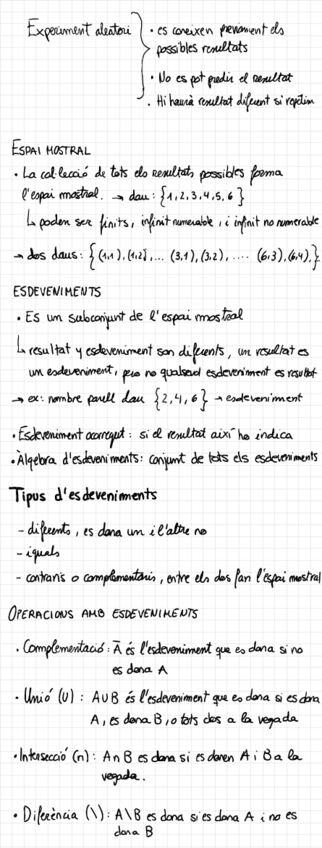 Experiment aleatori
· es coneixen previament els
possibles resultats
· No es pot predir el resultat
· Hi haurà resultat diferent si repetim
ESPAI MOSTRAL
· La col·lecció de tots els resultats possibles forma
l'espai mostral. → dau: {1,2,3,4,5,6}
↳ poden ser finits, infinit numerable, i infinit no numerable
→ dos daus: {(1,1),(1,2),... (3,1),(3,2),.... (6,3),(6,4),}
ESDEVENIMENTS
· Es un subconjunt de l'espai mostral
↳ resultat y esdeveniment son diferents, un resultat es
un esdeveniment, pero no qualsevol esdeveniment es resultat
→ ex: nombre parell dau {2,4,6} → esdeveniment
· Esdeveniment ocorregut: si el resultat així ho indica
· Àlgebra d'esdeveniments: conjunt de tots els esdeveniments
Tipus d'esdeveniments
- diferents, es dona un i l'altre no
- iguals
- contraris o complementaris, entre els dos fan l'espai mostral
OPERACIONS AMB ESDEVENIMENTS
· Complementació: Ā és l'esdeveniment que es dona si no
es dona A
· Unió (U): AUB és l'esdeveniment que es dona si es dona
A, es dona B, o tots dos a la vegada
· Intersecció (∩): A∩B es dona si es donen A i B a la
vegada.
· Diferència (\): A\B es dona si es dona A i no es
dona B